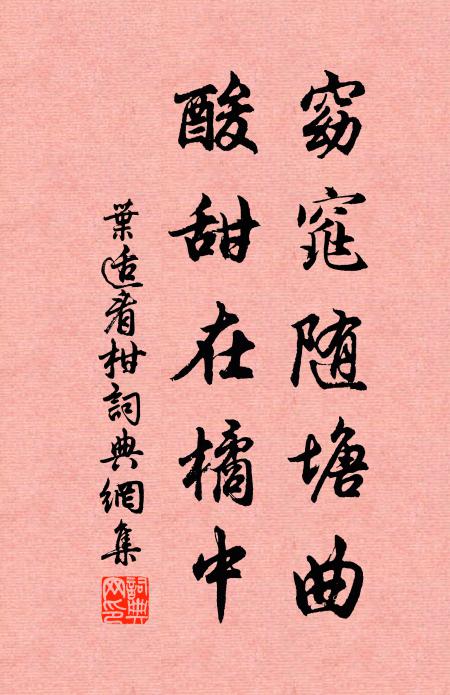 窈窕随塘曲
酸甜在橘中
葉适看柑詞典網集
詞典网印